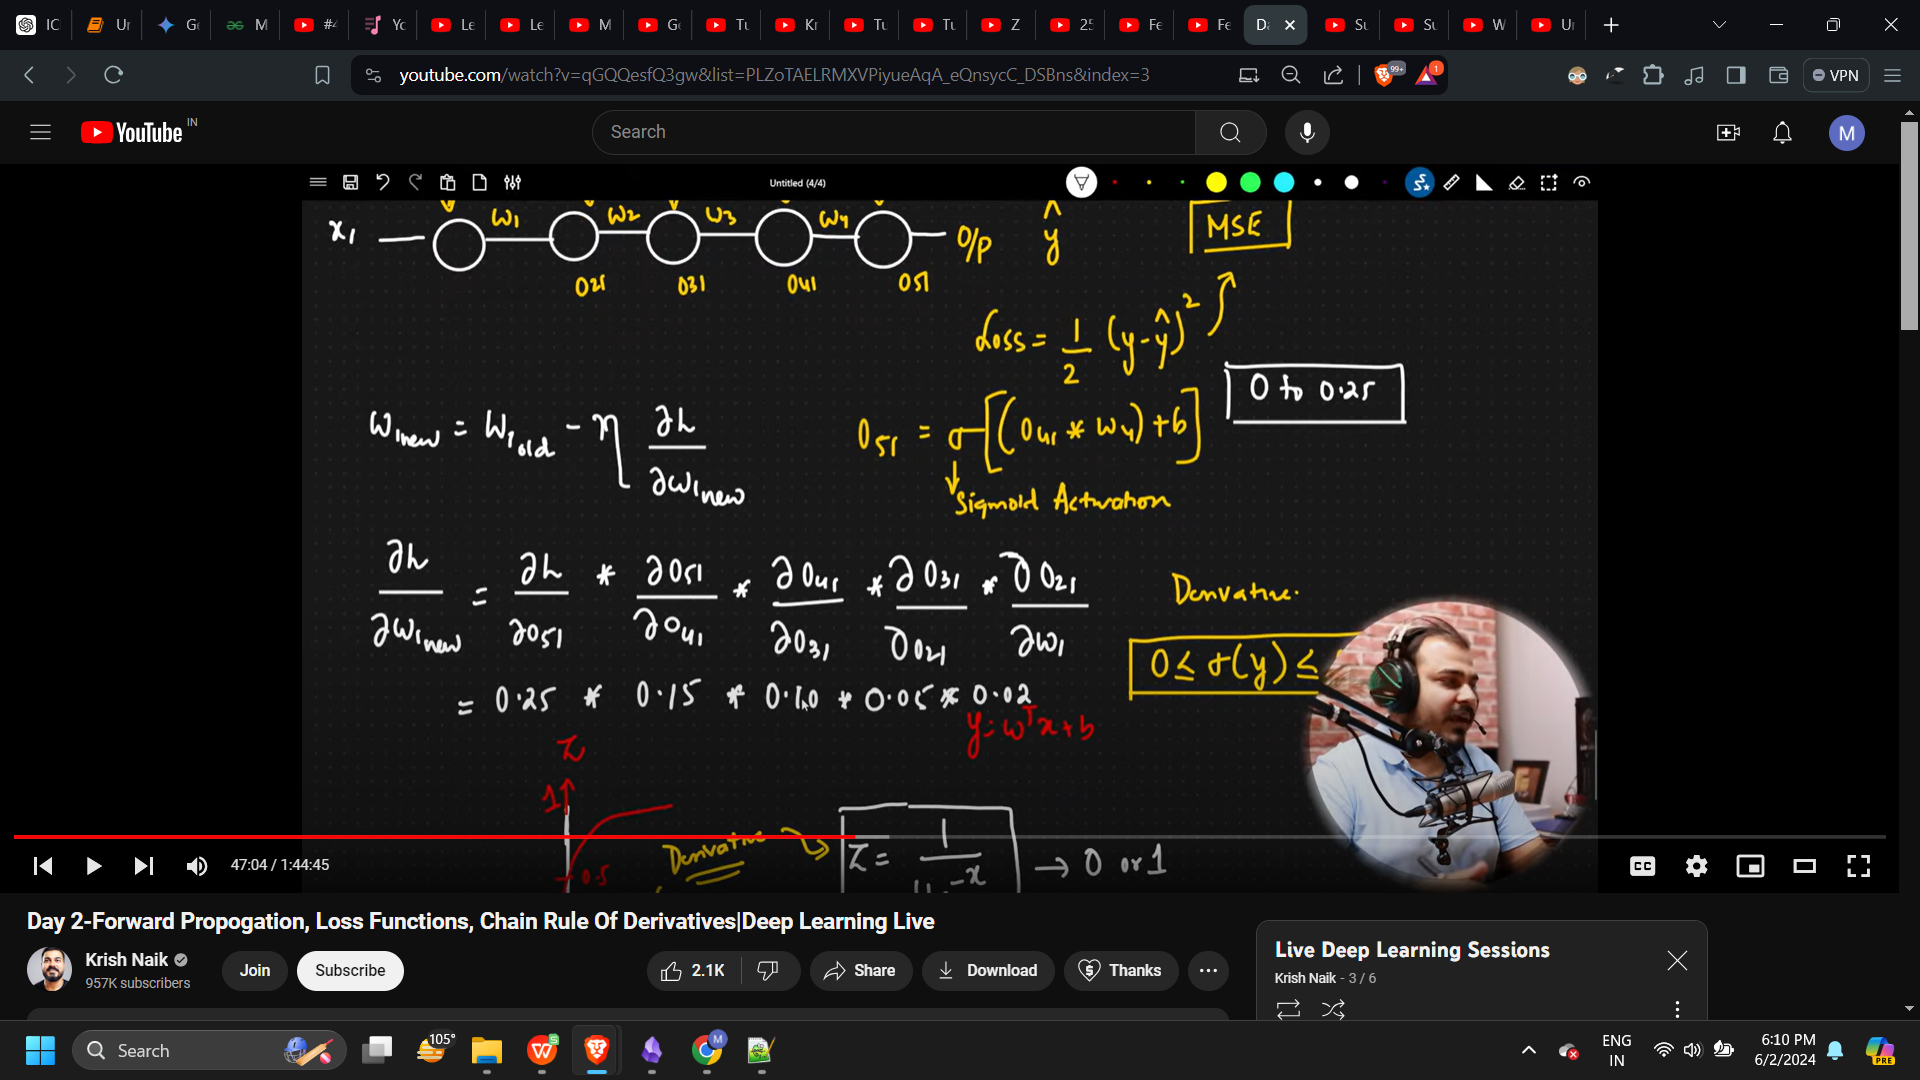 IC
Ur
Ge
M
#4
Yo
Le
Le
M
Ge
Tu
Kr
Tu
Tu
Z
25
Fe
Fe
Da
Su
Su
W
Ur
youtube.com/watch?v=qGQQesfQ3gw&list=PLZoTAELRMXVPiyueAqA_eQnsycC_DSBns&index=3
99+
1
VPN
YouTube IN
Search
M
Untitled (4/4)
x1 w1 w2 w3 w4 O/P ŷ MSE
O21 O31 O41 O51
Loss = 1/2 (y-ŷ)²
0 to 0.25
W1new = W1old - η ∂L/∂w1new
O51 = σ[(O41 * w4)+b]
Sigmoid Activation
∂L/∂w1new = ∂L/∂O51 * ∂O51/∂O41 * ∂O41/∂O31 * ∂O31/∂O21 * ∂O21/∂w1
Derivative.
0 ≤ σ(y) ≤
= 0.25 * 0.15 * 0.10 * 0.05 * 0.02
y = wᵀx + b
Z
1
Derivative
0.5
Z = 1 → 0 or 1
47:04 / 1:44:45
CC
Day 2-Forward Propogation, Loss Functions, Chain Rule Of Derivatives|Deep Learning Live
Krish Naik
957K subscribers
Join
Subscribe
2.1K
Share
Download
Thanks
Live Deep Learning Sessions
Krish Naik - 3 / 6
Search
105°
ENG
IN
6:10 PM
6/2/2024
PRE